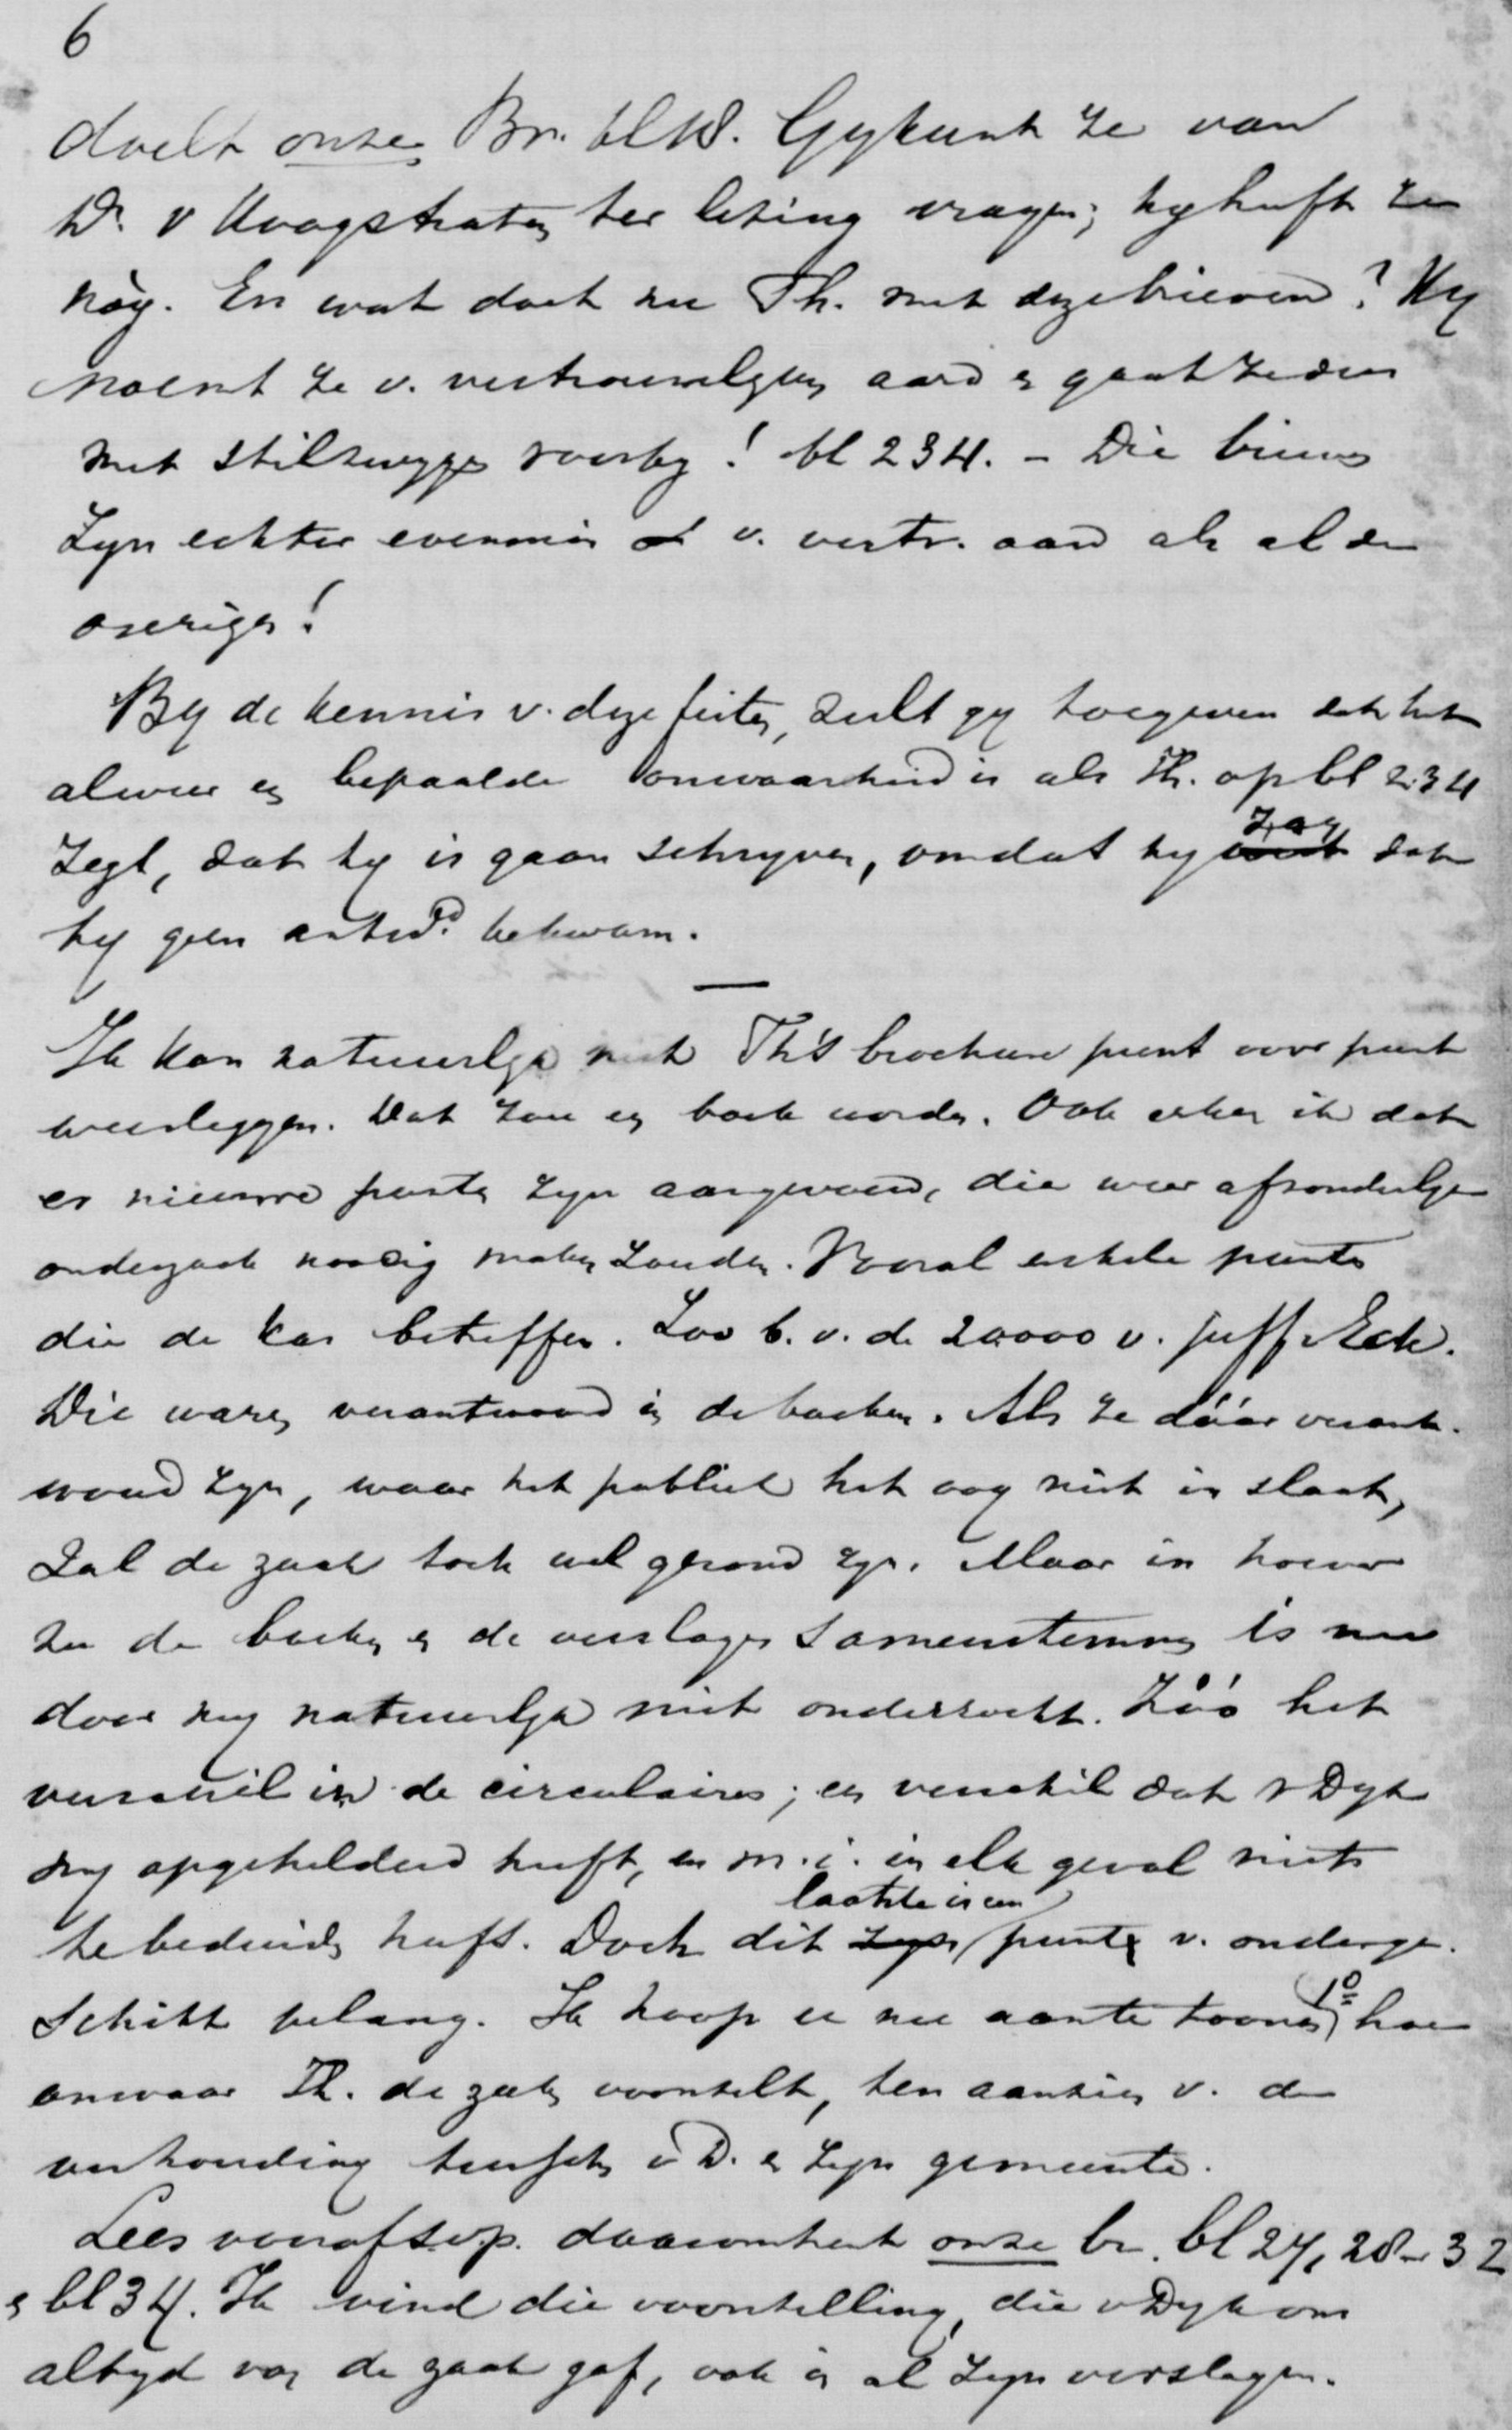 6
doelt onze Br. bl 18. Gy kunt ze van
Dr. v Hoogstraten ter lezing vragen; hy heeft ze
nòg. En wat doet nu Th. met deze brieven? Hy
noemt ze v. vertrouwelyken aard en gaat ze dan
met stilzwygen voorby! bl 234. – Die brieven
Zyn echter evenmin v. vertr. aard als al de
overige!
By de kennis v. deze feiten, zult gy toegeven dat het
alweer een bepaalde onwaarheid is als Th. op bl 234
Zegt, dat hy is gaan schryven, omdat hy zag dat
hy geen antwd. bekwam.
Ik kan natuurlyk niet Th's brochure punt voor punt
weerleggen. Dat zou een boek worden. Ook erken ik dat
er nieuwe punten zyn aangevoerd, die weer afzonderlyk
onderzoek noodig maken zouden. Vooral enkele punten
die de kas betreffen. Zoo b. v. de 20000 v. juff v Eck.
Die waren verantwoord in de boeken. Als ze dáár verant-
woord zyn, waar het publiek het oog niet in slaat,
Zal de zaak toch wel gezond zyn. Maar in hoever
nu de boeken en de verslagen samenstemmen is nu
door my natuurlyk niet onderzocht. Zóó het
verschil in de circulaires; een verschil dat v Dyk
my opgehelderd heeft, en m. i. in elk geval niets
te beduiden heeft. Doch dit laatste is een punt v. onderge-
schikt belang. Ik hoop u nu aan te toonen, 1º hoe
onwaar Th. de zaken voorstelt, ten aanzien v. de
verhouding tusschen v D. en zyn gemeente.
Lees vooraf s.v.p. daaromtrent onze br. bl 27, 28–32
en bl 34. Ik vind die voorstelling, die v Dyk ons
altyd van de zaak gaf, ook in al zyn verslagen.